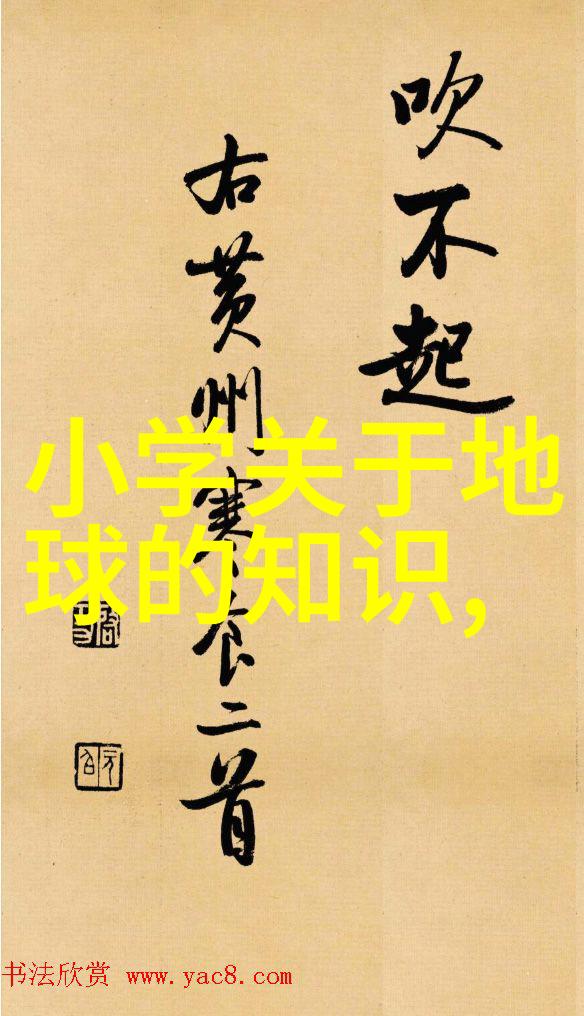 吹不起
右黄州寒食二首
小学关于地
球的知识,
书法欣赏 www.yac8.com